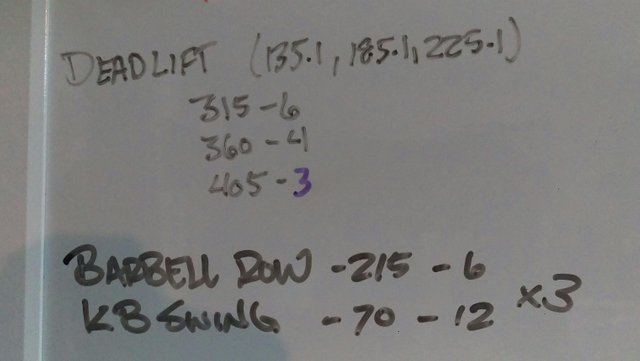 DEADLIFT (135.1, 185.1, 225.1)
315-6
360-4
405-3
BARBELL ROW -215 -6
KB SWING -70 -12 x3